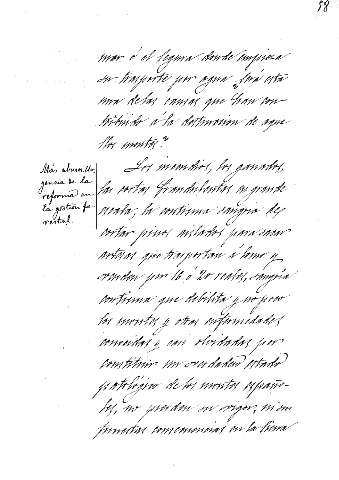 58
mar ó el Segura donde empieza
su trasporte por agua ¿será esta
una de las causas que han con-
tribuido á la destruccion de aque-
llos montes?
Más sobre la ur-
gencia de la
reforma en
la gestión fo-
restal.
Los incendios, los ganados,
las cortas fraudulentas en grande
escala; la continua sangria de
cortar pinos aislados para sacar
que trasportan á lomo y
venden por 16 o 20 reales, sangria
continua que debilita y
los montes y otras enfermedades
conocidas y casi olvidadas por
constituir un verdadero estado
patológico de los montes españo-
les, no pierden su vigor, ni sus
funestas consecuencias en la Sierra